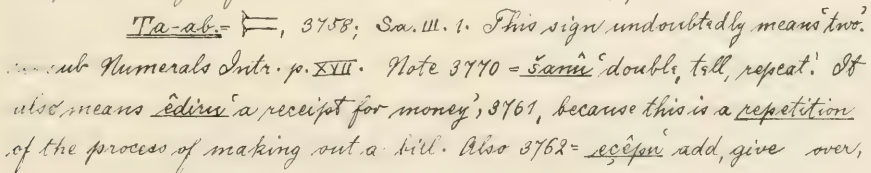 Ta-ab. = 𒋰, 3758; Sa. III. 1. This sign undoubtedly means 'two'.
sub Numerals Intr. p. XVII. Note 3770 = šanû 'double, tell, repeat'. It
also means êdiru 'a receipt for money', 3761, because this is a repetition
of the process of making out a bill. Also 3762 = eçêpu add, give over,